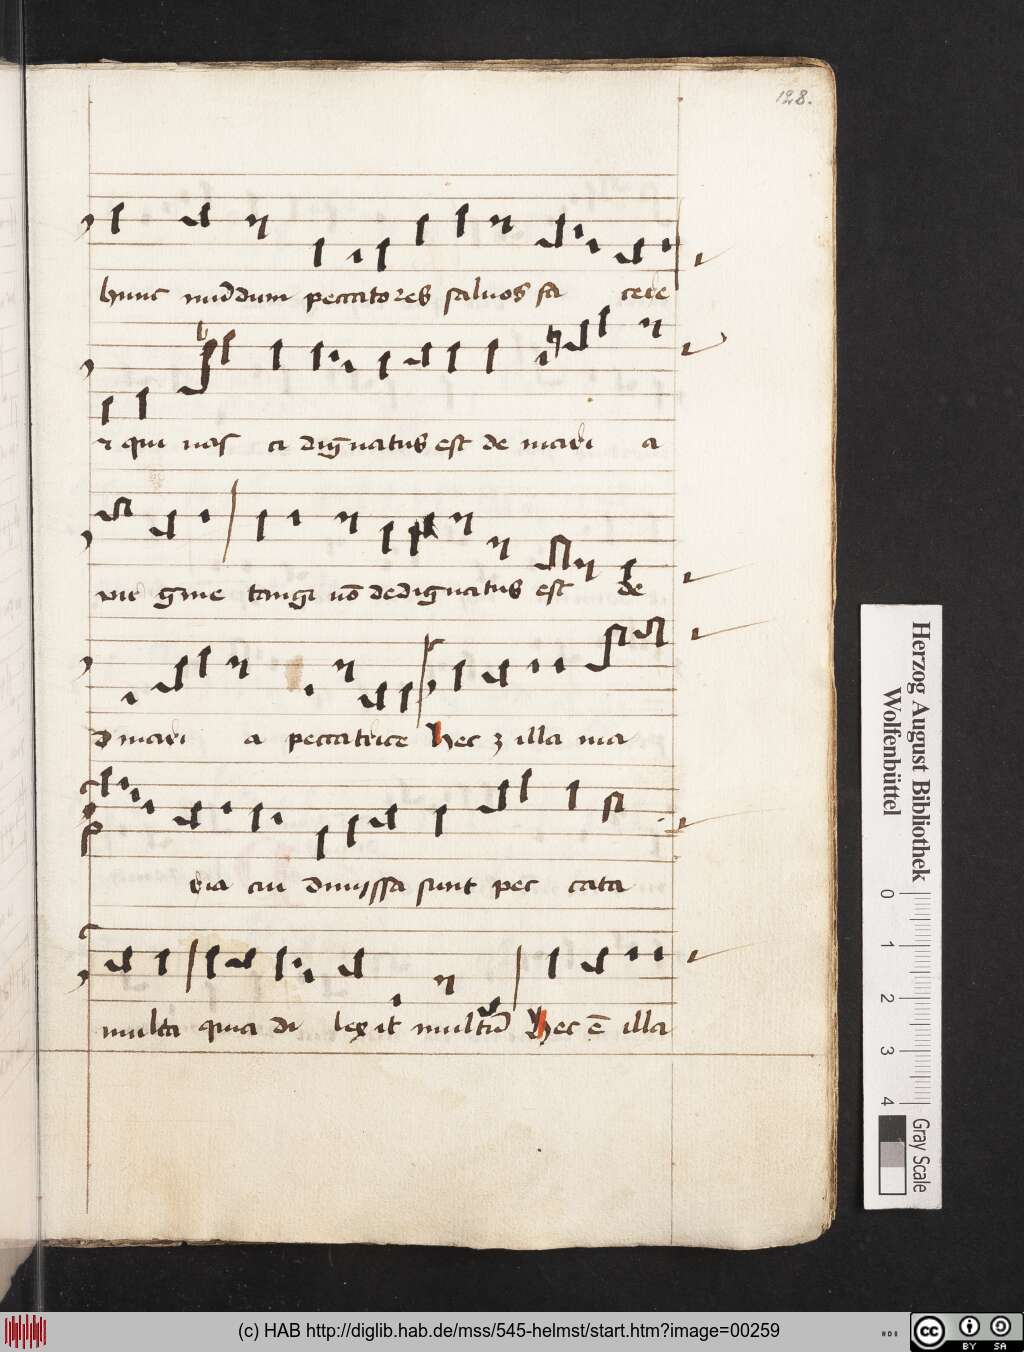 128.
hunc mūdum peccatores saluos fa cere
⁊ qui nas ci dignatus est de mari a
vir gine tangi nō dedignatus est de
mari a peccatrice Hec ⁊ illa ma
ria cui dimissa sunt pec cata
multa quia di lexit multū Hec ē illa
Herzog August Bibliothek
Wolfenbüttel
0 1 2 3 4
Gray Scale
(c) HAB http://diglib.hab.de/mss/545-helmst/start.htm?image=00259
cc BY SA